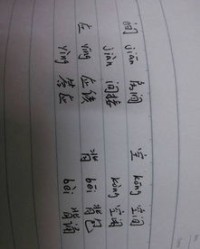 间 jiān 房间 空 kōng 空间
jiàn 间接 kòng 空闲
应 yīng 背 bēi 背包
yìng 答应 bèi 背诵